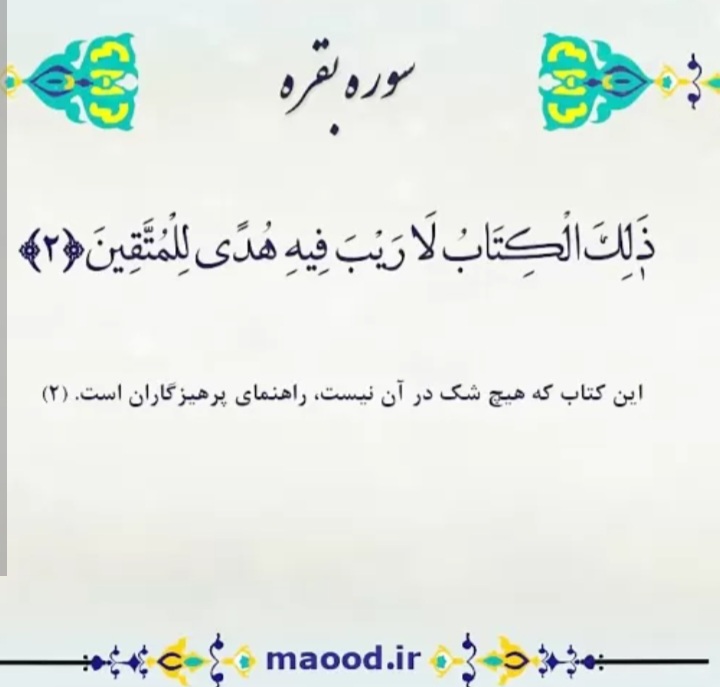 سوره بقره
ذَٰلِكَ الْكِتَابُ لَا رَيْبَ فِيهِ هُدًى لِلْمُتَّقِينَ ﴿۲﴾
این کتاب که هیچ شک در آن نیست، راهنمای پرهیزگاران است. (۲)
maood.ir